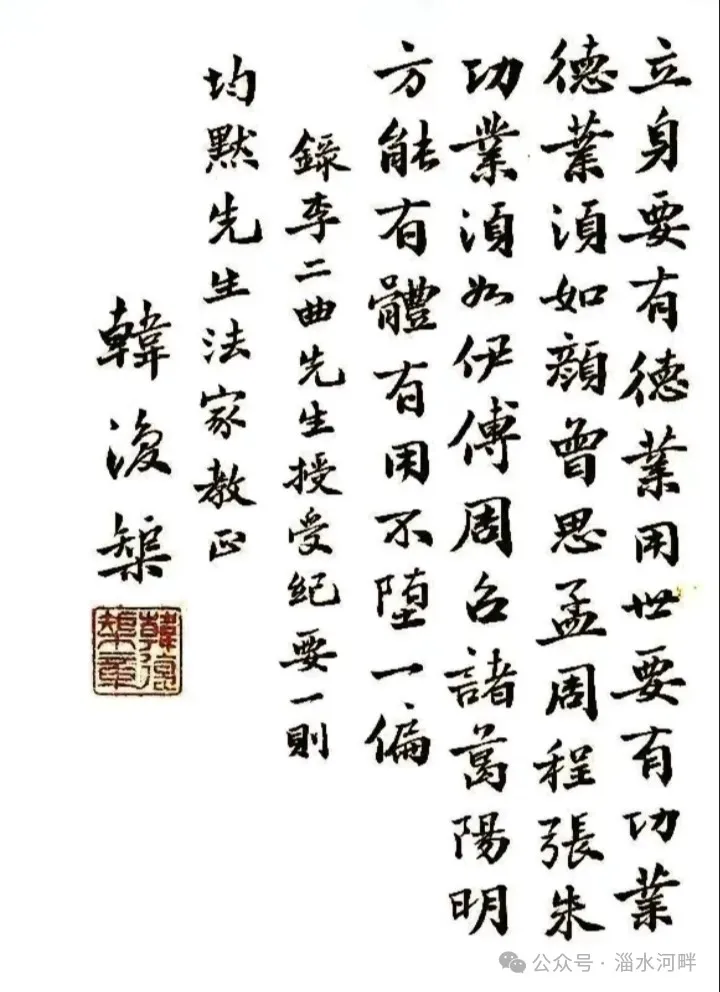 立身要有德業用世要有功業
德業須如顏曾思孟周程張朱
功業須如伊傅周召諸葛陽明
方能有體有用不墮一偏
錄李二曲先生授受紀要一則
均默先生法家教正
韓復榘
韓復榘章
公众号·淄水河畔